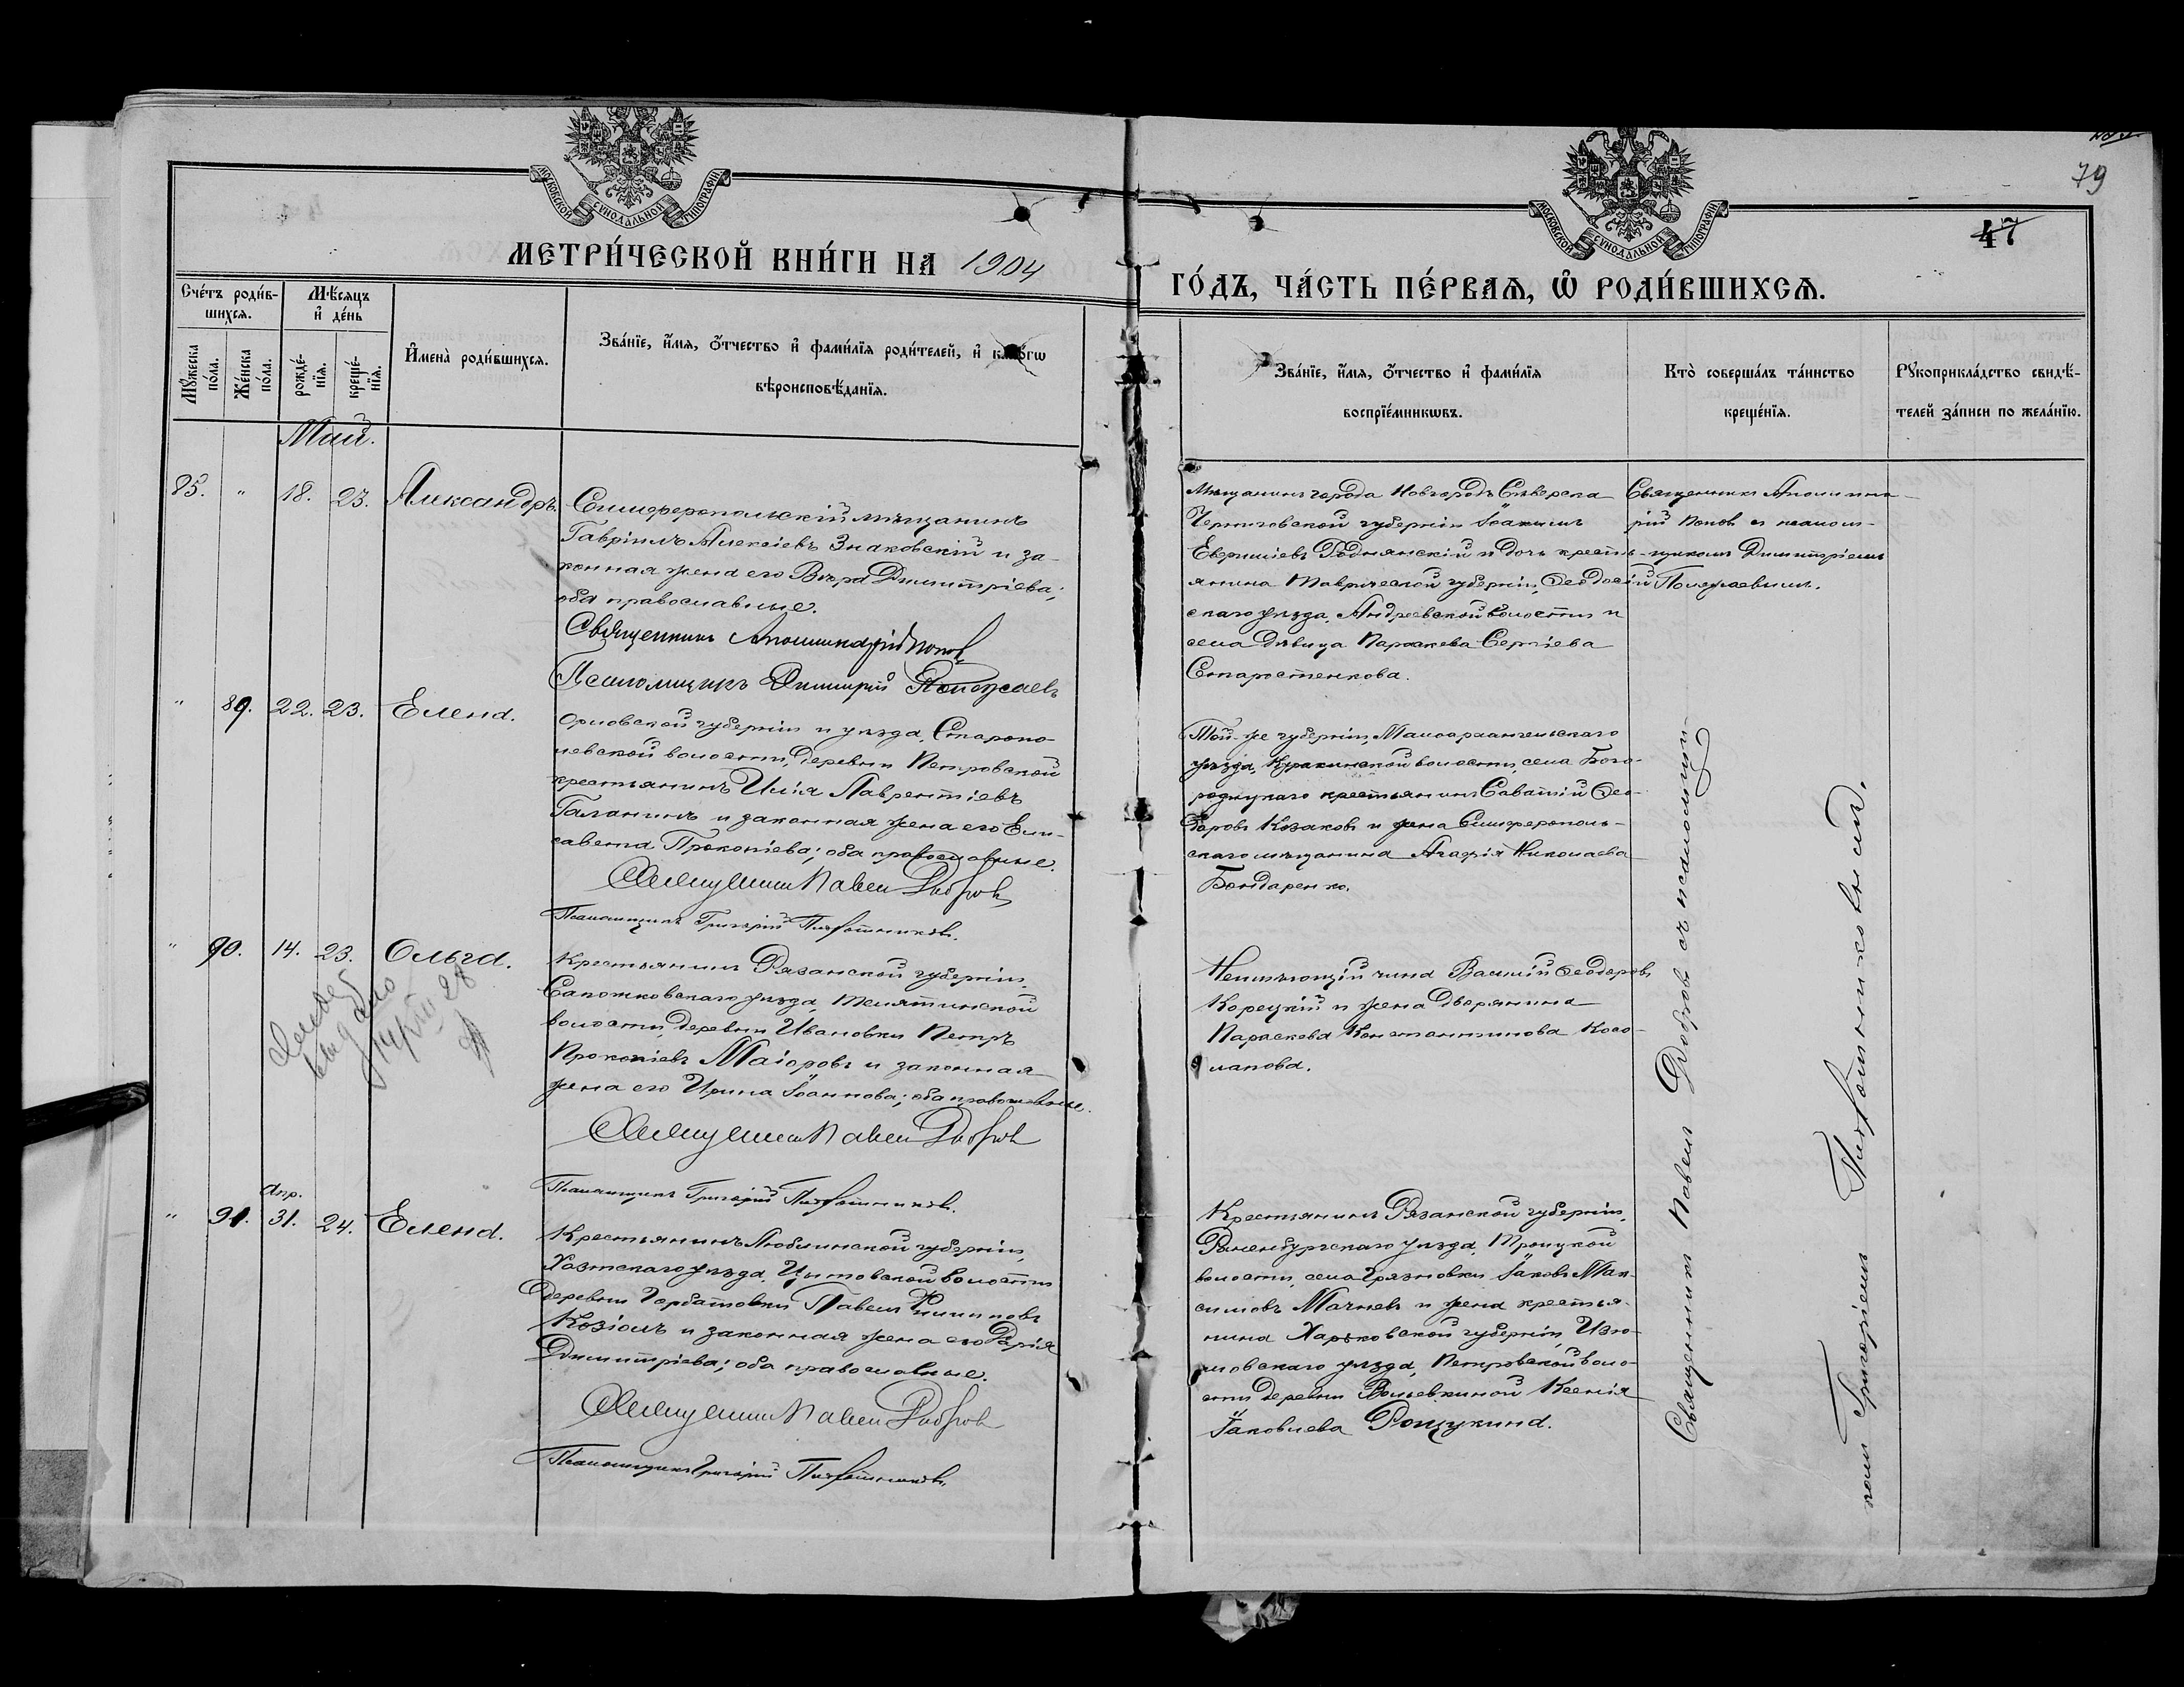 79
47
МОСКОВСКОЙ СѴНОДАЛЬНОЙ ТИПОГРАФІИ
МОСКОВСКОЙ СѴНОДАЛЬНОЙ ТИПОГРАФІИ
МЕТРИ́ЧЕСКОЙ КНИ́ГИ НА 1904
ГО́ДЪ, ЧА́СТЬ ПЕ́РВАѦ, Ѡ҆ РОДИ́ВШИХСѦ.
Сче́тъ роди́в-
шихсѧ.
Мꙋ́жеска по́ла.
Же́нска по́ла.
Мѣ́сѧцъ
и҆ де́нь
рожде́-
нїѧ.
креще́-
нїѧ.
И҆мена̀ роди́вшихсѧ.
Зва́нїе, и҆́мѧ, о҆́тчество и҆ фами́лїѧ роди́телей, и҆ како́гѡ
вѣроисповѣ́данїѧ.
Зва́нїе, и҆́мѧ, о҆́тчество и҆ фами́лїѧ
воспрїе́мникѡвъ.
Кто̀ соверша́лъ та́инство
креще́нїѧ.
Рꙋкоприкла́дство свидѣ́-
телей за́писи по жела́нїю.
Май.
85. " 18. 23. Александръ.
Симферопольскій мѣщанинъ
Гавріилъ Алексіевъ Знаковскій и за-
конная жена его Вѣра Димитріева;
оба православные.
Священникъ Аполлинарій Попов
Псаломщикъ Димитрій Полежаевъ
Мѣщанинъ города Новгородъ Сѣверска
Черниговской губерніи Іоакимъ
Евѳиміевъ Роднянскій и дочь кресть-
янина Таврической губерніи, Ѳеодосій
скаго уѣзда, Андреевской волости и
села дѣвица Параскева Сергіева
Старостенкова.
Священникъ Аполлина-
рій Попов съ псалом-
щикомъ Димитріемъ
Полежаевымъ.
" 89. 22. 23. Елена.
Орловской губерніи и уѣзда, Старопо-
левской волости, деревни Петровской
крестьянинъ Илія Лаврентіевъ
Галанинъ и законная жена его Ели-
савета Прокопіева; оба православные.
Священникъ Павелъ Добровъ
Псаломщикъ Григорій
Той-же губерніи, Малоархангельскаго
уѣзда, Куракинской волости, села Бого-
родицкаго крестьянинъ Саватій Ѳео-
доровъ Козаковъ и жена Симферополь-
скаго мѣщанина Агафія Николаева
Бондаренко.
" 90. 14. 23. Ольга.
Крестьянинъ Рязанской губерніи,
Сапожковскаго уѣзда, Телятинской
волости, деревни Ивановки Петръ
Прокопіевъ Маіоровъ и законная
жена его Ирина Іоаннова; оба православные.
Священникъ Павелъ Добровъ
Псаломщикъ Григорій
Неимѣющій чина Василій Ѳеодоровъ
Корецкій и жена дворянина
Параскева Константинова Косо-
лапова.
" 91. апр. 31. 24. Елена.
Крестьянинъ Люблинской губерніи,
Холмскаго уѣзда, Цытовской волости
деревни Горбатовки Павелъ Филипповъ
Козіолъ и законная жена его Дарія
Димитріева; оба православные.
Священникъ Павелъ Добровъ
Псаломщикъ Григорій
Крестьянинъ Рязанской губерніи,
Раненбургскаго уѣзда, Троицкой
волости, села Грязновки Іаковъ Мак-
симовъ Мачневъ и жена крестья-
нина Харьковской губерніи, Изю-
мовскаго уѣзда, Петровской воло-
сти деревни Волвенкиной Ксенія
Іаковлева Рощукина.
Священникъ Павелъ Добровъ съ псаломщи-
комъ Григоріемъ